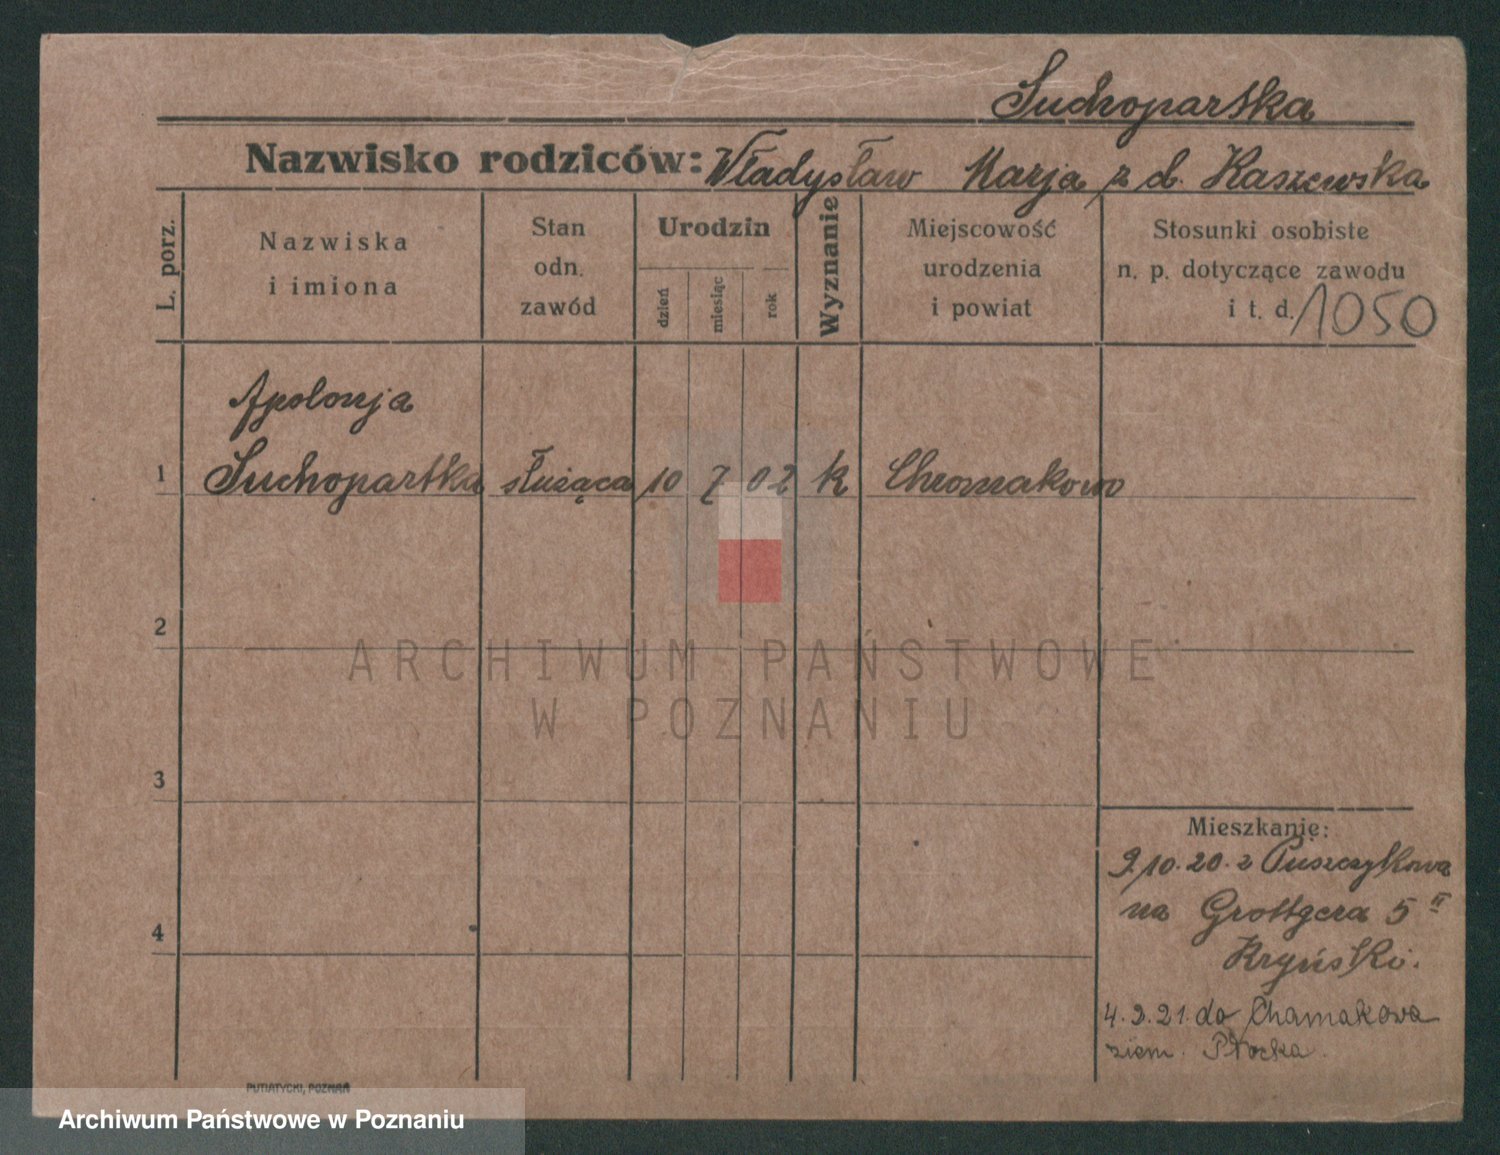 Suchopartka
Nazwisko rodziców: Władysław Marja z d. Kaszewska
L. porz.
Nazwiska
i imiona
Stan
odn.
zawód
Urodzin
dzień
miesiąc
rok
Wyznanie
Miejscowość
urodzenia
i powiat
Stosunki osobiste
n. p. dotyczące zawodu
i t. d. 1050
Apolonja
1 Suchopartka służąca 10 7 02 k Chromakowo
2
ARCHIWUM PAŃSTWOWE
W POZNANIU
3
Mieszkanie:
9/10.20. z Puszczykowa
na Grottgera 5 II
Kryński.
4
4.2.21. do Chamakowa
ziem. Płocka.
PUTIATYCKI, POZNAŃ
Archiwum Państwowe w Poznaniu